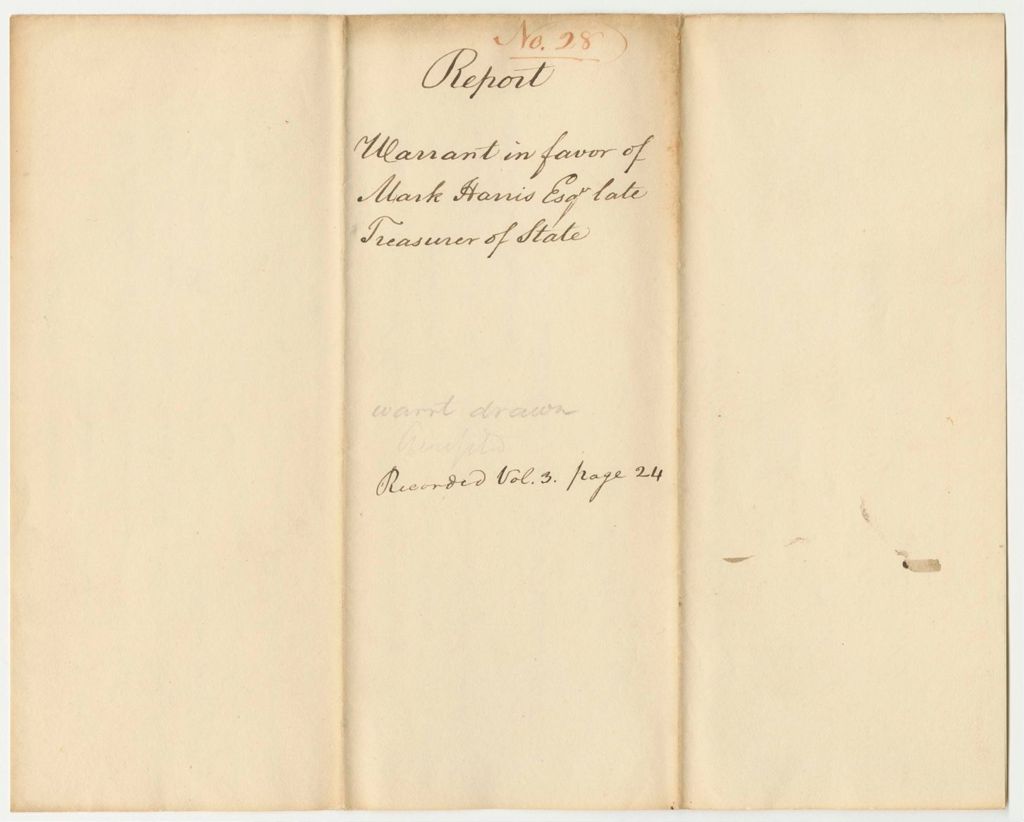 No. 28
Report
Warrant in favor of
Mark Harris Esqr late
Treasurer of State
warrt drawn
Recorded Vol. 3. page 24